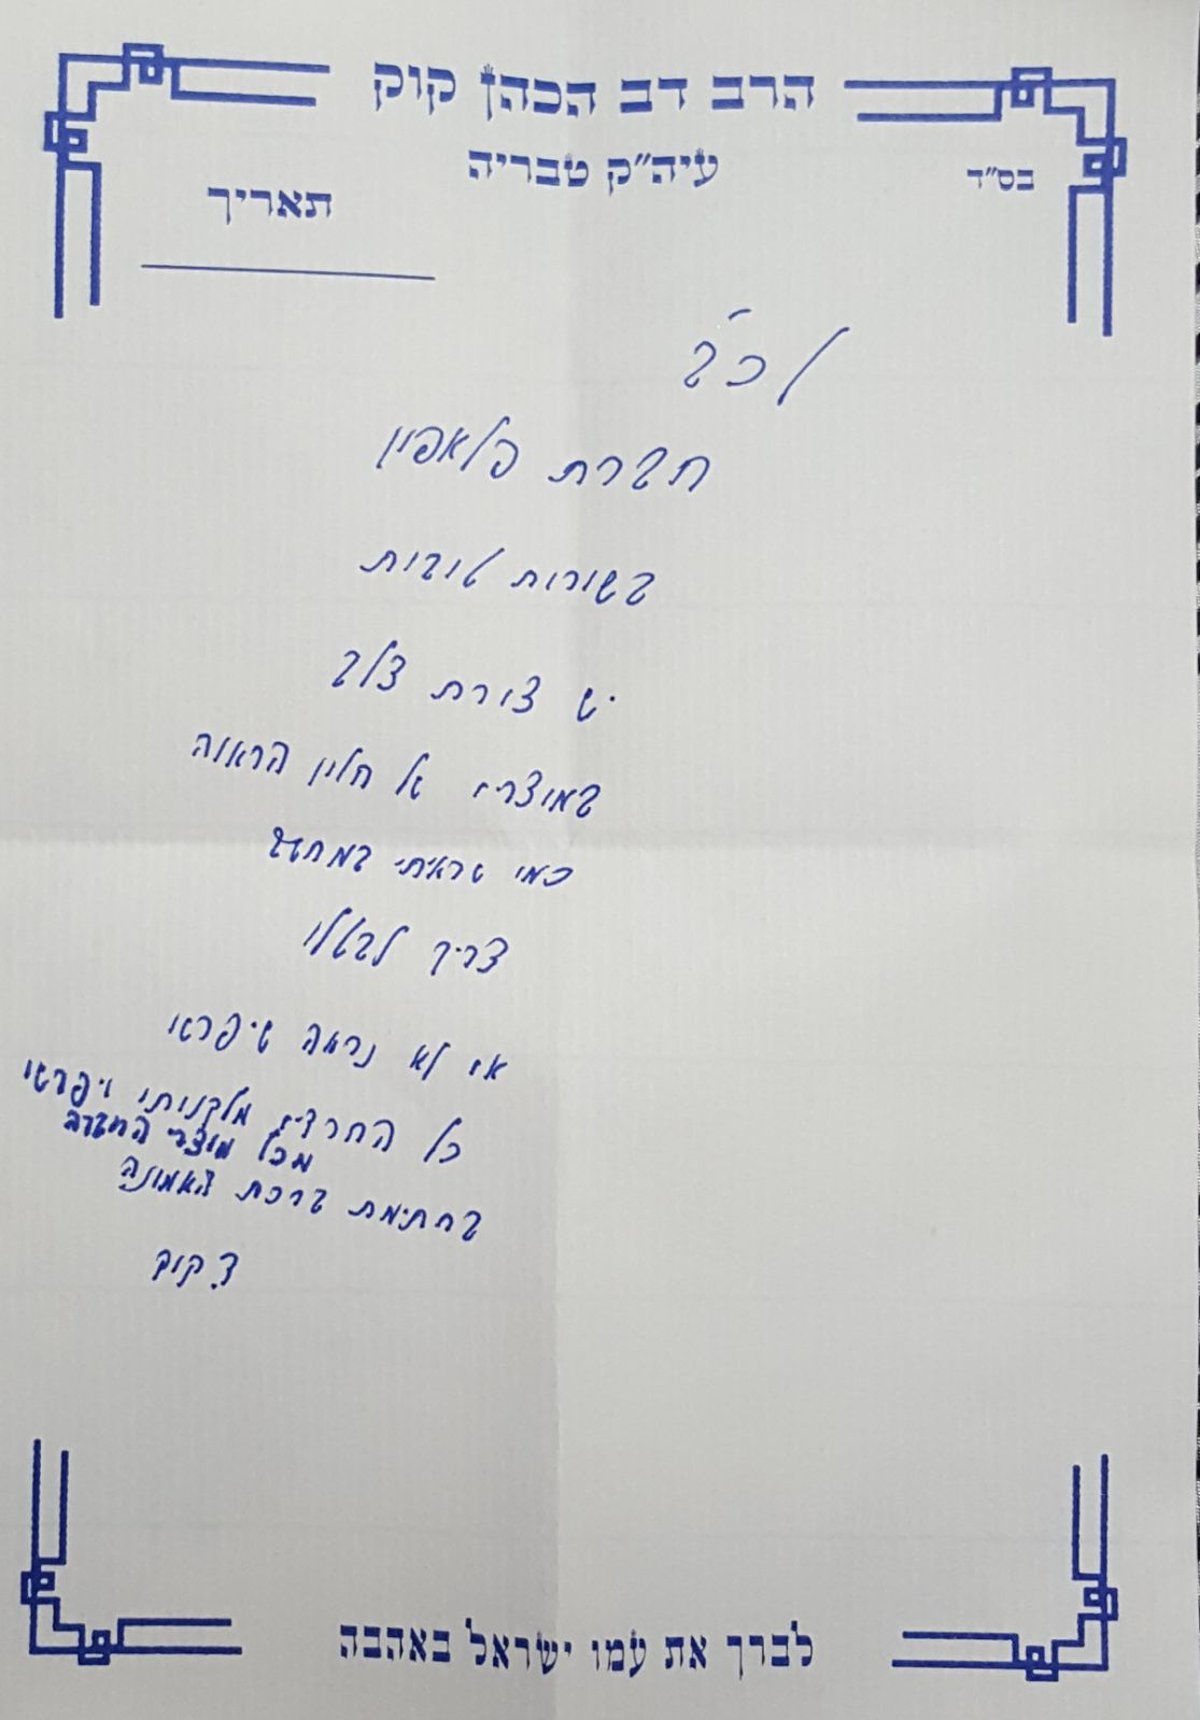 הרב דב הכהן קוק
עיה"ק טבריה
בס"ד
תאריך
לכב'
חברת פלאפון
בשורות טובות
יש צורת צלב
במוצרים של חלון הראווה
כמו שראיתי במחשב
צריך לבטלו
אז לא נראה שיפרשו
כל החרדים מלקנותו ויפרשו
מכל מוצרי החברה
בחתימת ברכת האמונה
ד. קוק
לברך את עמו ישראל באהבה